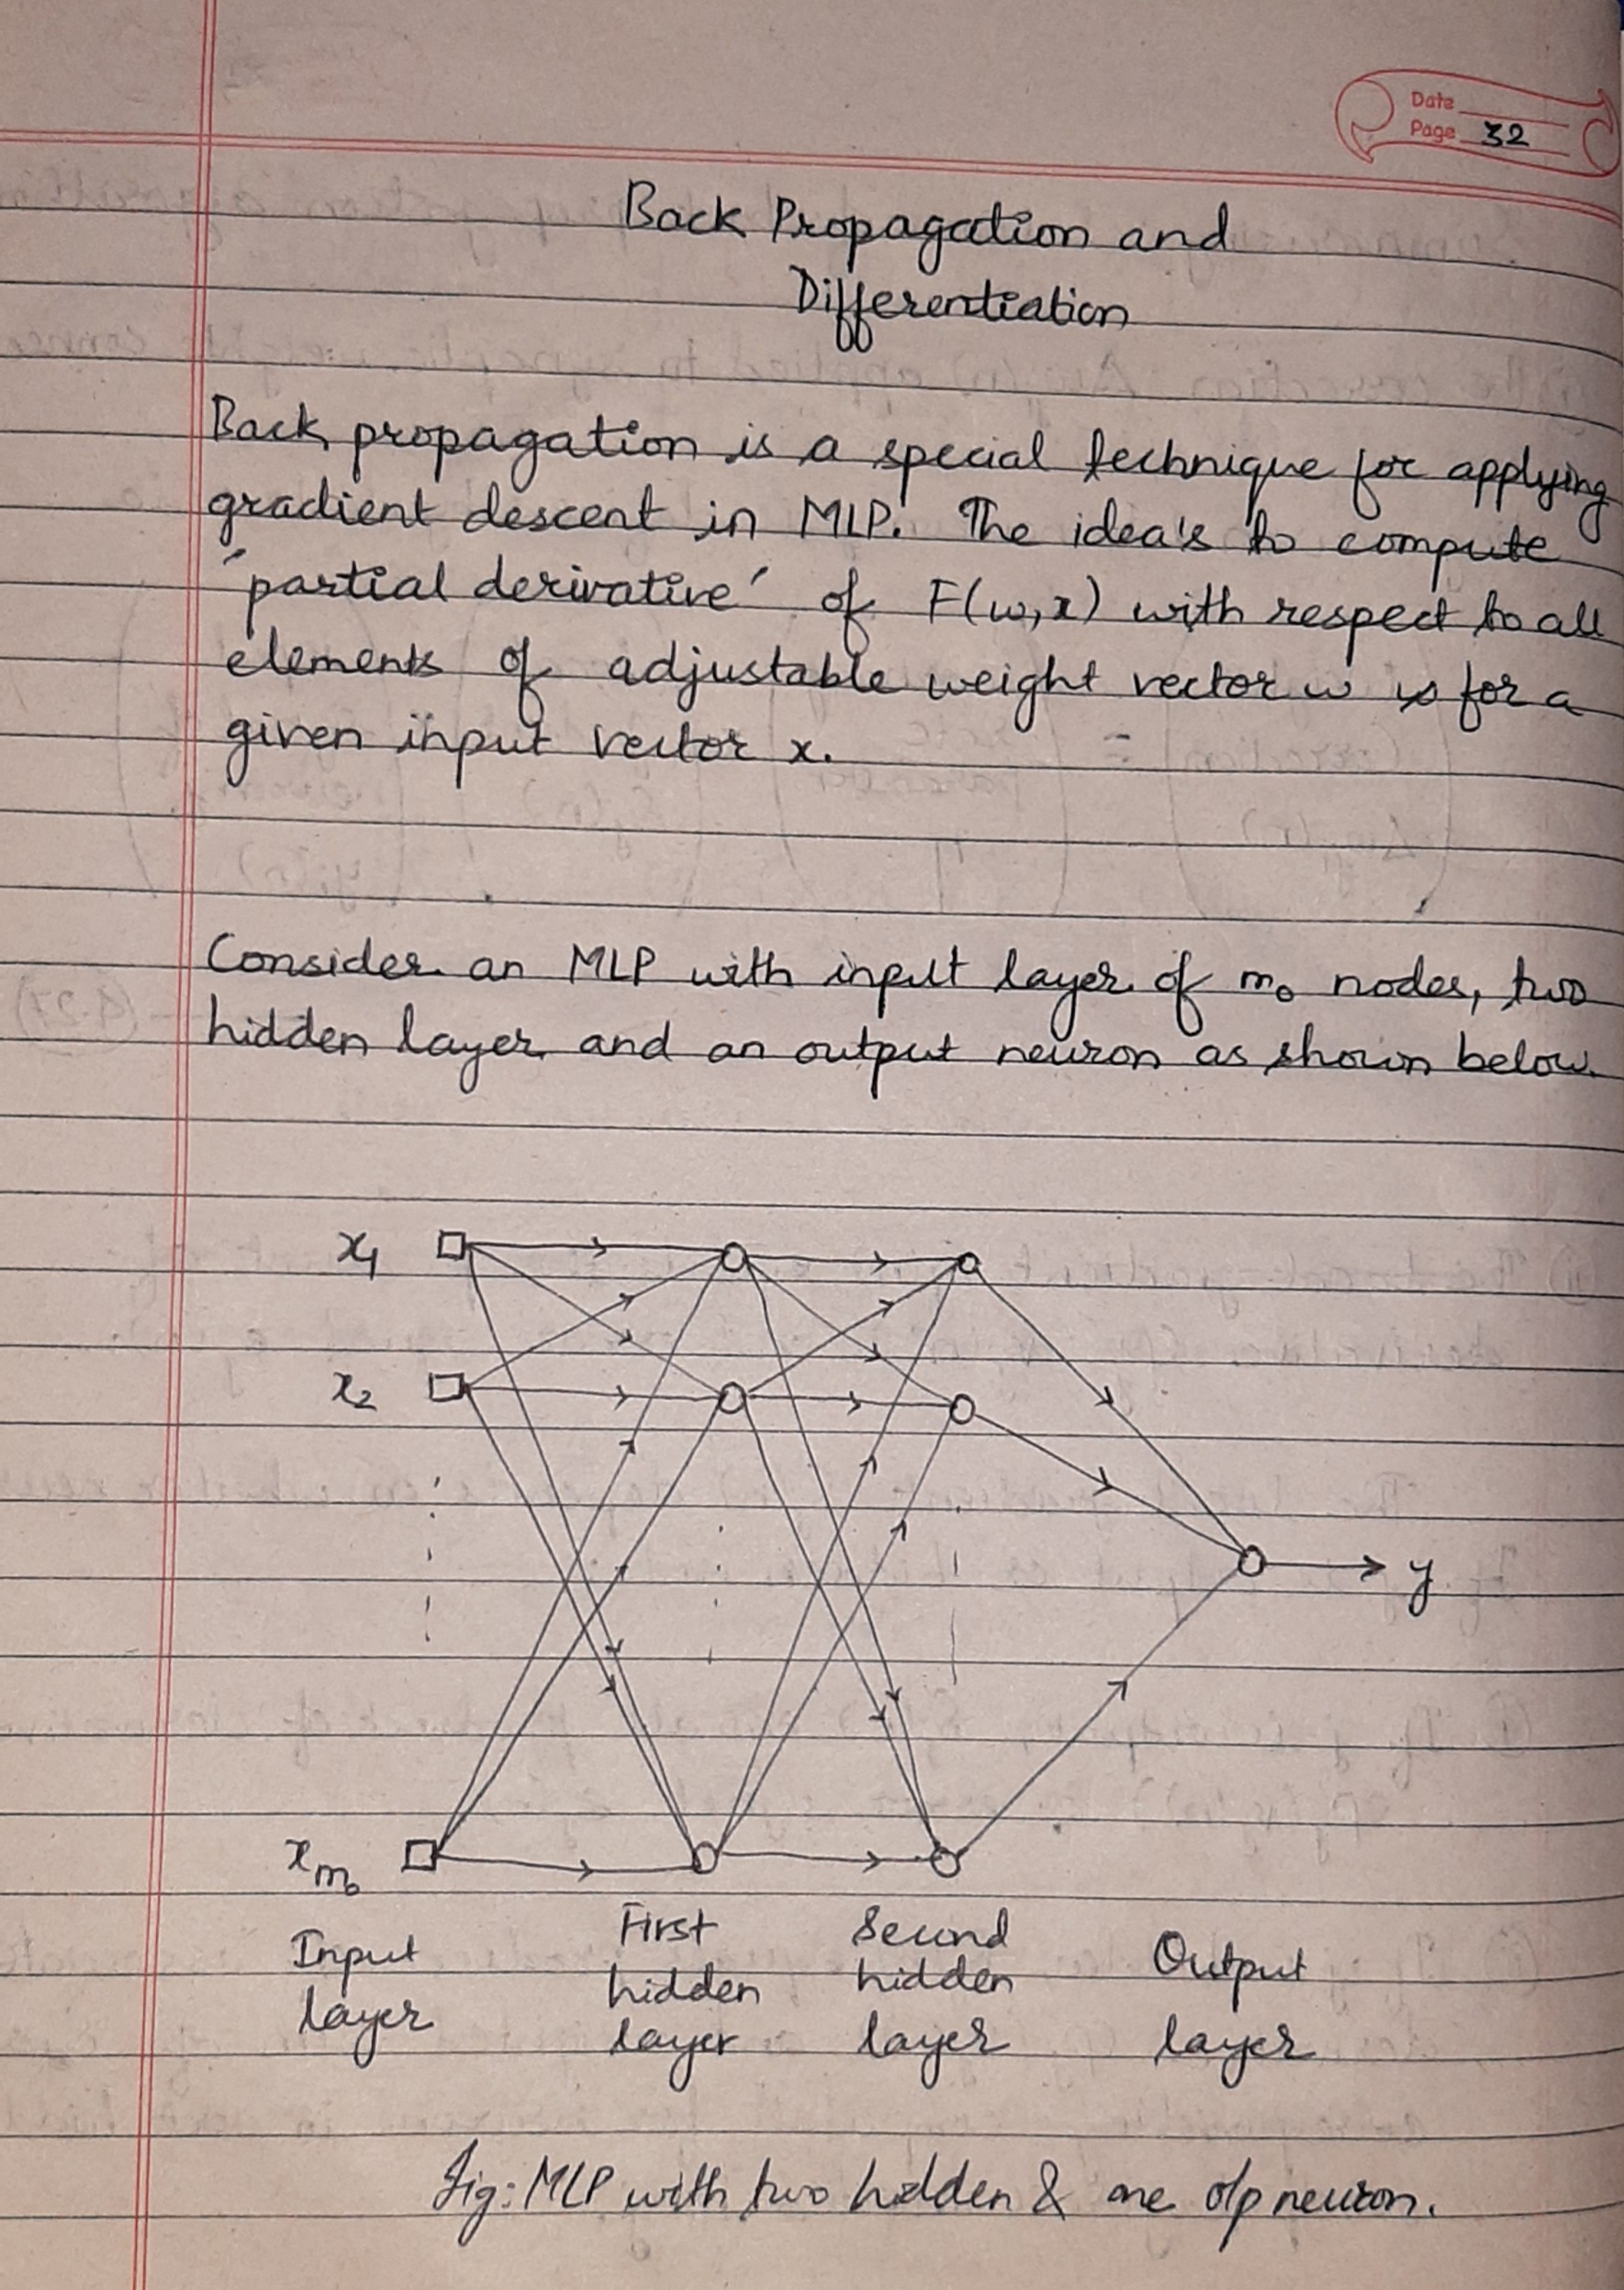 Date
Page 32
Back Propagation and
Differentiation
Back propagation is a special technique for applying
gradient descent in MLP. The idea's to compute
'partial derivative' of F(w,x) with respect to all
elements of adjustable weight vector w is for a
given input vector x.
Consider an MLP with input layer of m₀ nodes, two
hidden layer and an output neuron as shown below.
x₁
x₂
y
xₘ₀
Input layer
First hidden layer
Second hidden layer
Output layer
Fig: MLP with two hidden & one o/p neuron.